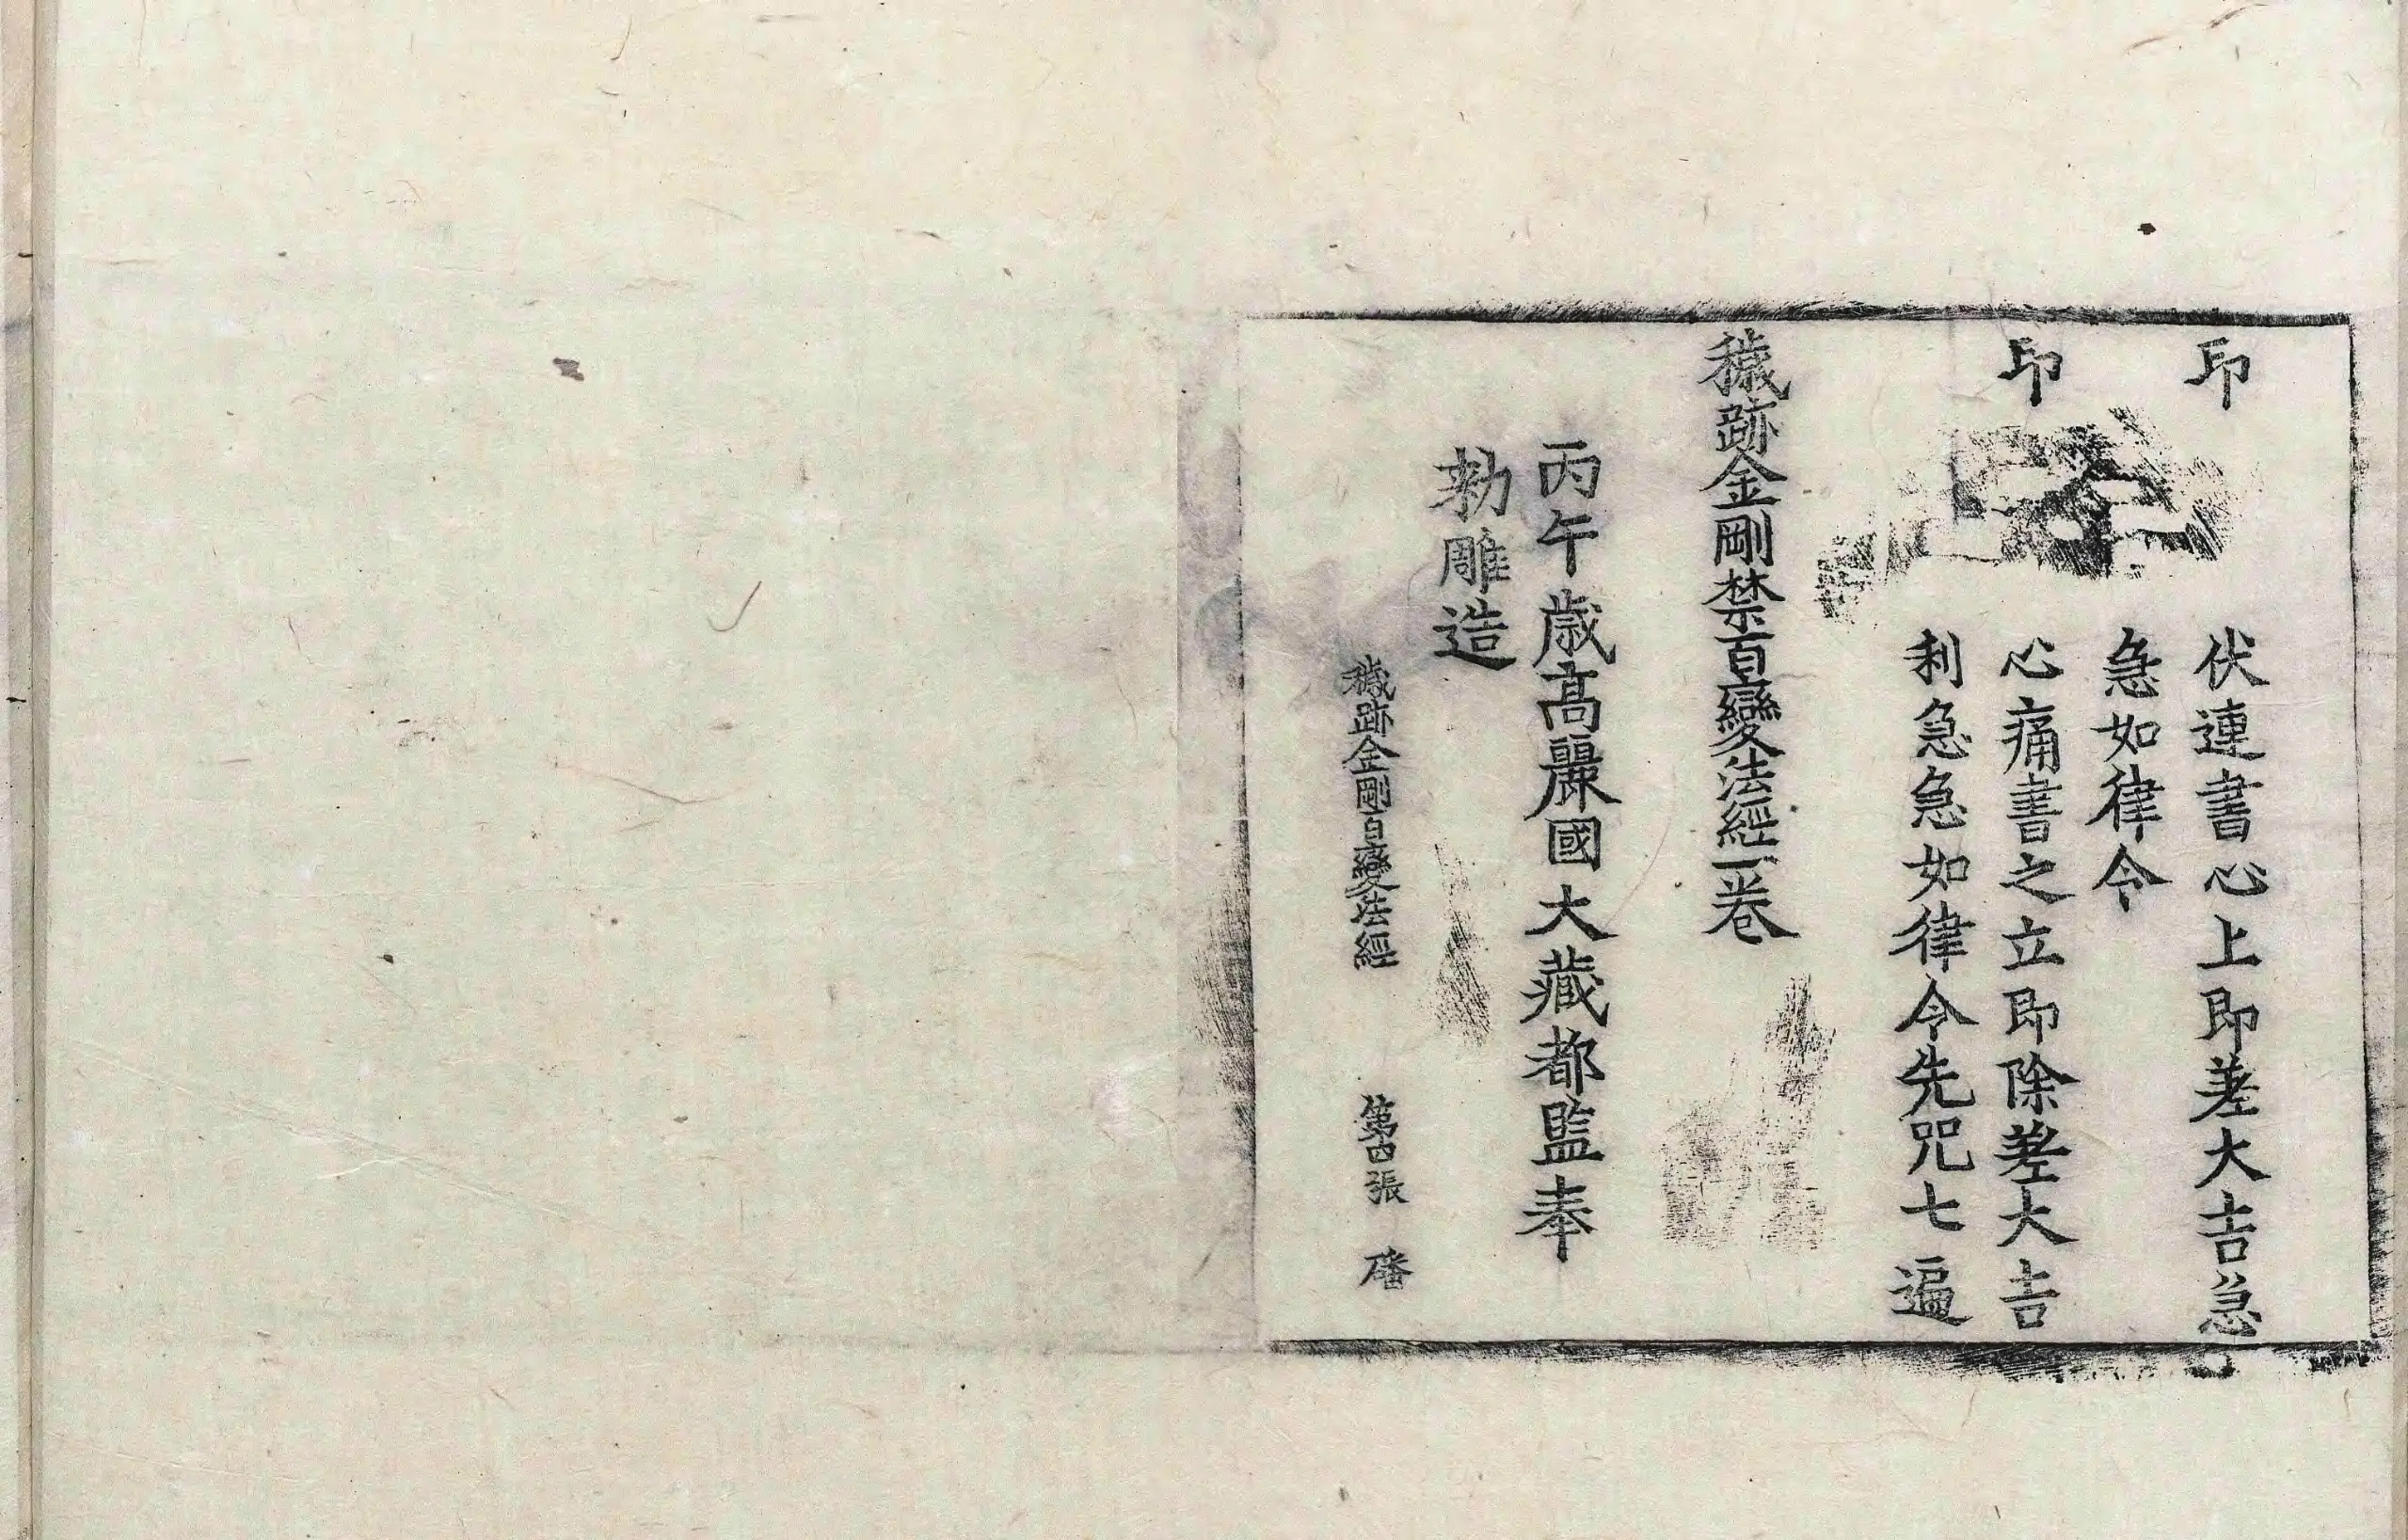 印 伏連書心上即差大吉急
急如律令
印 心痛書之立即除差大吉
利急急如律令先咒七遍
穢跡金剛禁百變法經一卷
丙午歲高麗國大藏都監奉
勅雕造
穢跡金剛百變法經 第四張 磻